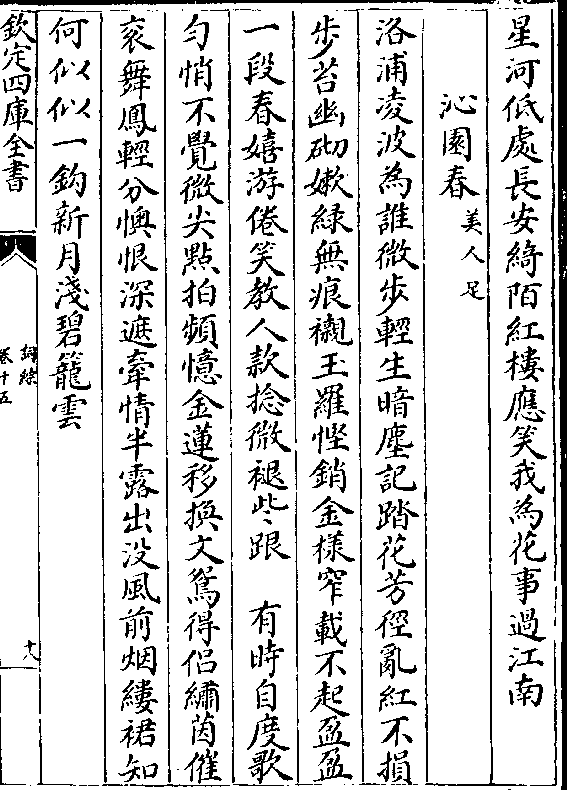 星河低處長安綺陌紅樓應笑我為花事過江南
沁園春 美人足
洛浦凌波為誰微步輕生暗塵記踏花芳徑亂紅不損
步苔幽砌嫩綠無痕襯玉羅慳銷金樣窄載不起盈盈
一段春嬉游倦笑教人款捻微褪些些跟 有時自度歌
勻悄不覺微尖點拍頻憶金蓮移換文鴛得侣繡茵催
衮舞鳳輕分懊恨深遮牽情半露出没風前烟縷裙知
何似似一鈎新月淺碧籠雲
欽定四庫全書
詞綜
卷十五
十八